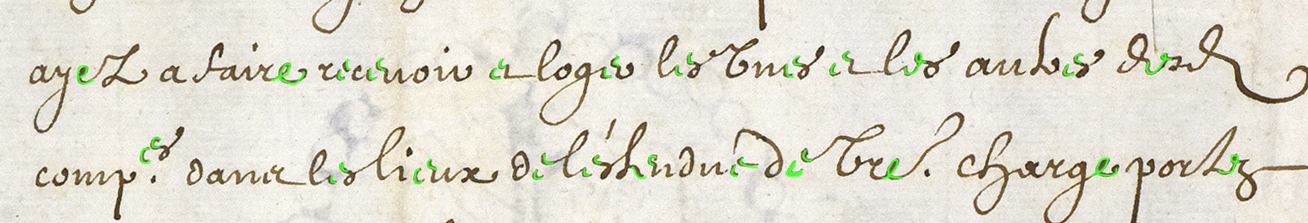 ayez a faire recevoir et loger les vnes et les autres desd
comp.es dans les lieux de léstendue de vre. charge portez